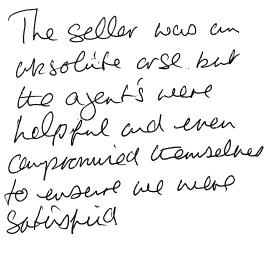 The seller was an
absolute arse but
the agent's were
helpful and even
compromised themselves
to ensure we were
satisfied